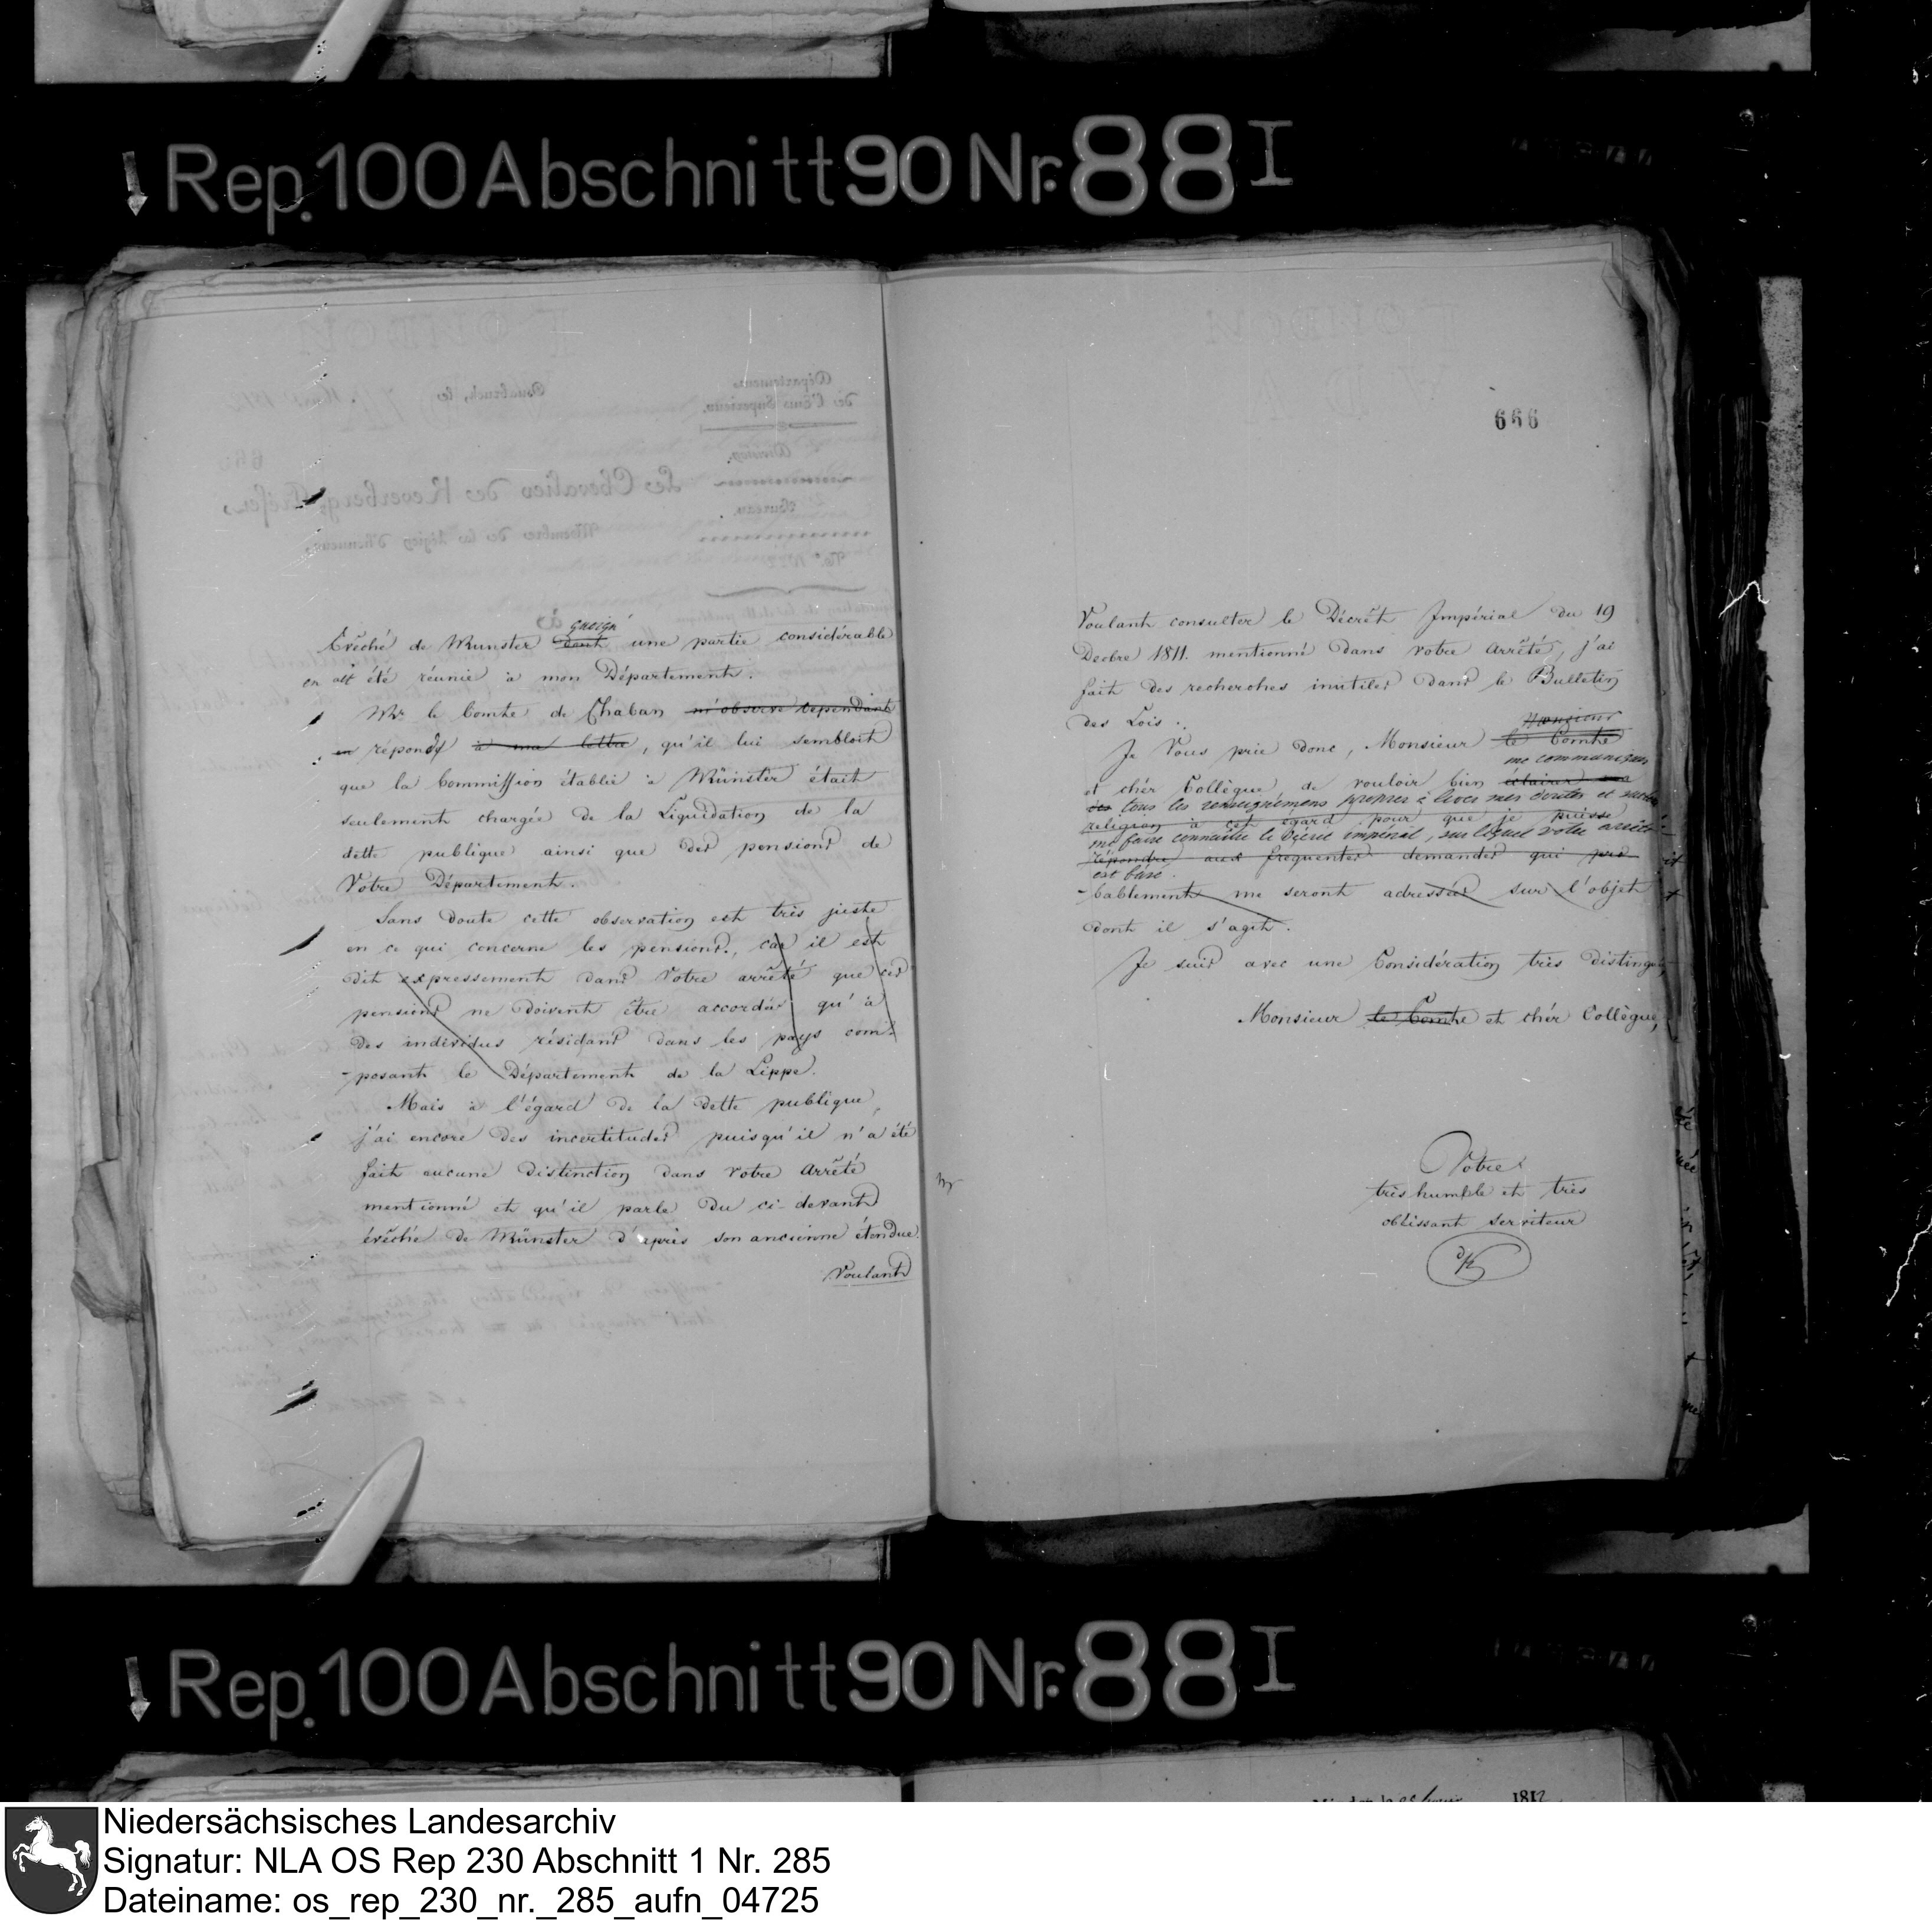 Rep. 100 Abschnitt 90 Nr. 88 I
Evêché de Munster dont quoiqu' une partie considérable
en ait été réunie à mon Département.
Mr. le Comte de Chaban m'observe cependant
en répond à ma lettre, qu'il lui sembloit
que la Commission établie à Münster était
seulement chargée de la Liquidation de la
dette publique ainsi que des pensions de
Votre Département.
Sans doute cette observation est très juste
en ce qui concerne les pensions, car il est
dit expressement dans Votre arrêté que ces
pensions ne doivent être accordés qu'à
des individus résidant dans les pays com-
-posant le Département de la Lippe.
Mais à l'égard de la dette publique,
j'ai encore des incertitudes puisqu'il n'a été
fait aucune distinction dans Votre Arrêté
mentionné et qu'il parle du ci-devant
évêché de Münster d'après son ancienne étendue.
Voulant
666
Voulant consulter le Décrêt Impérial du 19
Decbre 1811. mentionné dans votre Arrêté, j'ai
fait des recherches inutiles dans le Bulletin
des Lois.
Monsieur
Je Vous prie donc, Monsieur le Comte
me communiquer
et chér Collègue de vouloir bien éclairer ma
tous les renseignemens propres à lever mes doutes et surtout
religion à cet égard pour que je puisse
me faire connaitre le Décret impérial, sur lequel votre arrêté
répondre aux frequentes demandes qui pro
est basé.
-bablement me seront adressées sur l'objet
dont il s'agit.
Je suis avec une Considération très distinguée,
Monsieur le Comte et chér Collègue,
Votre
très humble et très
obéissant serviteur
Rep. 100 Abschnitt 90 Nr. 88 I
1812
Niedersächsisches Landesarchiv
Signatur: NLA OS Rep 230 Abschnitt 1 Nr. 285
Dateiname: os_rep_230_nr._285_aufn_04725